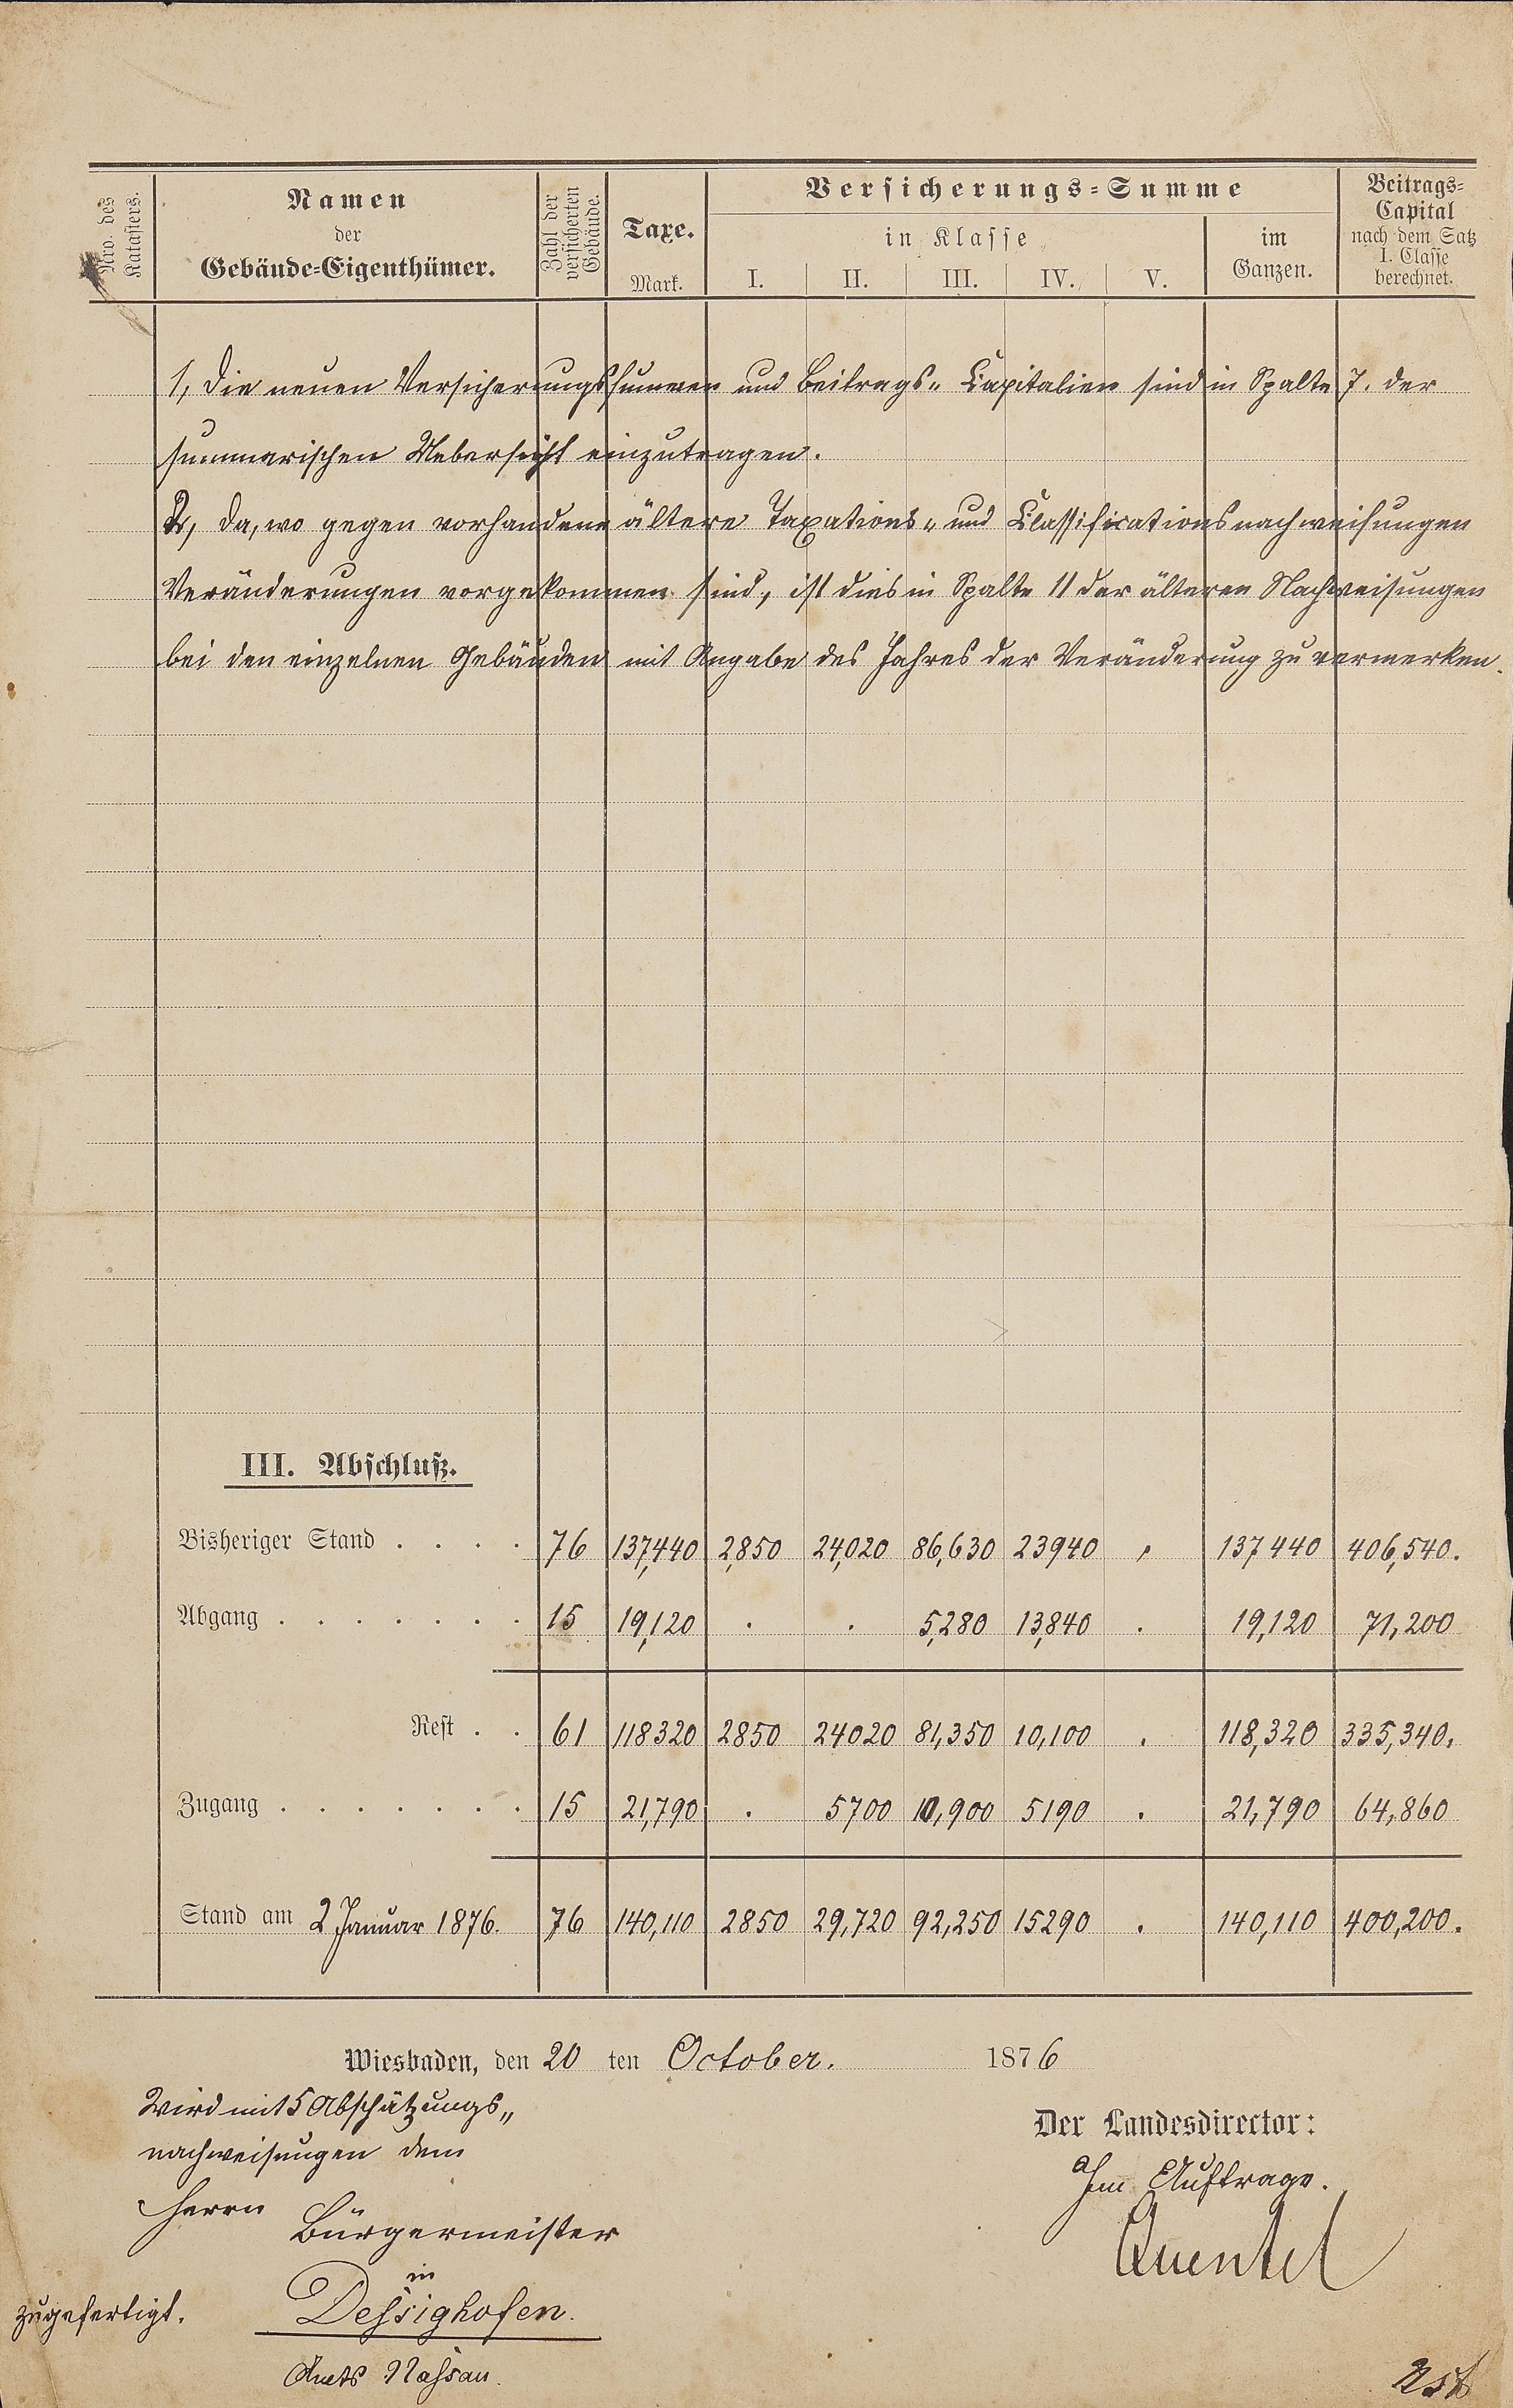 Nro. des Katasters.
Namen der Gebäude=Eigenthümer.
Zahl der versicherten Gebäude.
Taxe. Mark.
Versicherungs=Summe
in Klasse
I. II. III. IV. V.
im Ganzen.
Beitrags=Capital nach dem Satz I. Classe berechnet.
1, Die neuen Versicherungssummen und Beitrags„ Capitalien sind in Spalte 7. der
summarischen Uebersicht einzutragen.
2, Da, wo gegen vorhandene ältere Taxations„ und Classificationsnachweisungen
Veränderungen vorgekommen sind, ist dies in Spalte 11 der älteren Nachweisungen
bei den einzelnen Gebäuden mit Angabe des Jahres der Veränderung zu vermerken.
III. Abschluß.
Bisheriger Stand . . . . 76 137,440 2,850 24,020 86,630 23940 . 137440 406,540.
Abgang . . . . . . . 15 19,120 . . 5,280 13,840 . 19,120 71,200
Rest . . 61 118320 2850 24020 81,350 10,100 . 118,320 335,340.
Zugang . . . . . . . 15 21,790 . 5700 10,900 5190 . 21,790 64,860
Stand am 2 Januar 1876. 76 140,110 2850 29,720 92,250 15290 . 140,110 400,200.
Wiesbaden, den 20 ten October. 1876
Wird mit 5 Abschätzungs„
nachweisungen dem
Herrn
Bürgermeister
in
Dessighofen.
Amts Nassau.
zugefertigt.
Der Landesdirector:
Im Auftrage.
Quentel